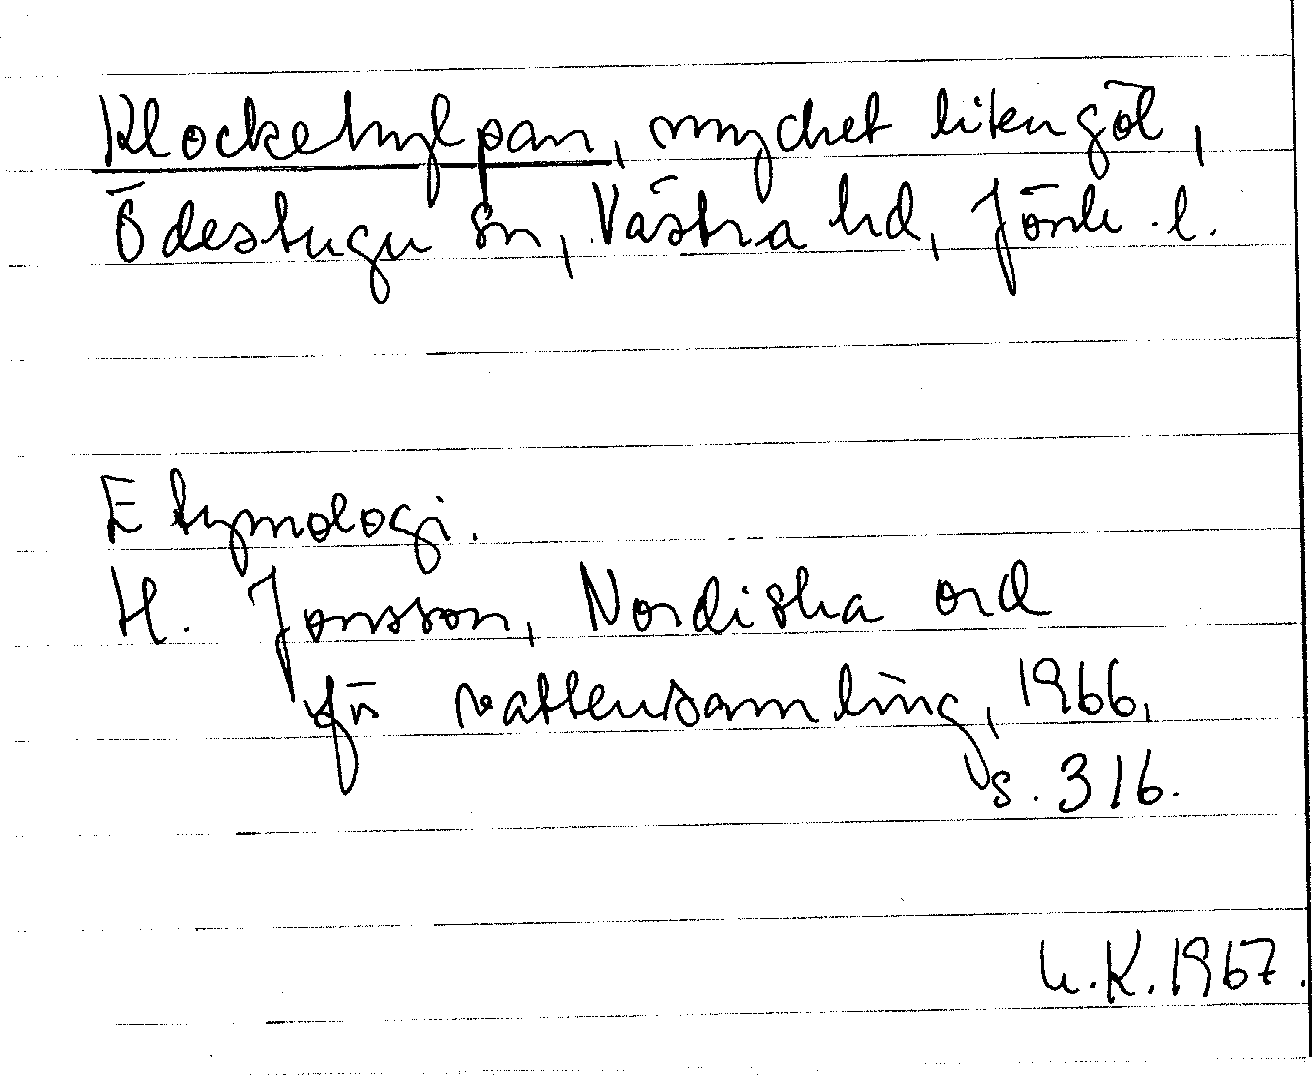 Klockehylpan, mycket liten göl,
Ödestugu sn, Västra hd, Jönk. l.
Etymologi.
H. Jonsson, Nordiska ord
för vattensamling, 1966,
s. 316.
U.K. 1967.